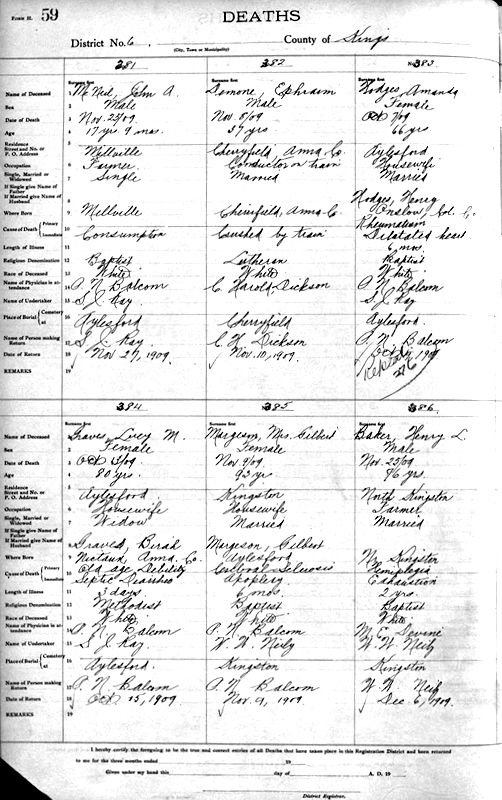 FORM H. 59
DEATHS
District No. 6, County of Kings
(City, Town or Municipality)
381 382 No. 383
Surname first Surname first Surname first
Name of Deceased 1 McNeil, John A. Ephraim Hodges, Amanda
Sex 2 Male Male Female
Date of Death 3 Nov. 25/09 Nov. 8/09 Oct 7/09
Age 4 17 yrs 9 mos. 37 yrs 66 yrs
Residence
Street and No. or
P. O. Address 5 Millville Cherryfield, Anna. Co. Aylesford
Occupation 6 Farmer Conductor on train Housewife
Single, Married or
Widowed 7 Single Married Married
If Single give Name of
Father
If Married give Name of
Husband 8 Hodges, Henry
Where Born 9 Millville Cherryfield, Anna. Co. Onslow, Col. Co.
Cause of Death { Primary 10 Consumption Crushed by train Rheumatism
Immediate Dilatated heart
Length of Illness 11 6 mos.
Religious Denomination 12 Baptist Lutheran Baptist
Race of Deceased 13 White White White
Name of Physician in at-
tendance 14 P. N. Balcom C. Harold Dickson P. N. Balcom
Name of Undertaker 15 S. J. Ray S. J. Ray
Place of Burial { Cemetery
at 16 Aylesford Cherryfield Aylesford
Name of Person making
Return 17 S. J. Ray C. H. Dickson P. N. Balcom
Date of Return 18 Nov 27, 1909. Nov. 10, 1909. 1909
REMARKS 19
384 385 386
Surname first Surname first Surname first
Name of Deceased 1 Graves, Lucy M. Margeson, Mrs. Gilbert Baker, Henry L.
Sex 2 Female Female Male
Date of Death 3 Oct /09 Nov 9/09 Nov. 25/09
Age 4 80 yrs. yr 86 yrs.
Residence
Street and No. or
P. O. Address 5 Aylesford Kingston North Kingston
Occupation 6 Housewife Housewife Farmer
Single, Married or
Widowed 7 Widow Married Married
If Single give Name of
Father
If Married give Name of
Husband 8 Graves, Margeson, Gilbert
Where Born 9 Nictaux, Anna. Co. Aylesford N. Kingston
Cause of Death { Primary 10 Old age Debility Cerebral Sclerosis Hemiplegia
Immediate Septic Diarrhea Apoplexy Exhaustion
Length of Illness 11 3 days 6 mos. 2 yrs.
Religious Denomination 12 Methodist Baptist Baptist
Race of Deceased 13 White White White
Name of Physician in at-
tendance 14 P. N. Balcom P. N. Balcom M. E. Devine
Name of Undertaker 15 S. J. Ray W. W. Neily W. W. Neily
Place of Burial { Cemetery
at 16 Aylesford. Kingston Kingston
Name of Person making
Return 17 P. N. Balcom P. N. Balcom W. W. Neily
Date of Return 18 Oct 15, 1909 Nov. 9, 1909 Dec. 6, 1909.
REMARKS 19
I hereby certify the foregoing to be the true and correct entries of all Deaths that have taken place in this Registration District and been returned
to me for the three months ended 19
Given under my hand this day of A. D. 19
District Registrar.